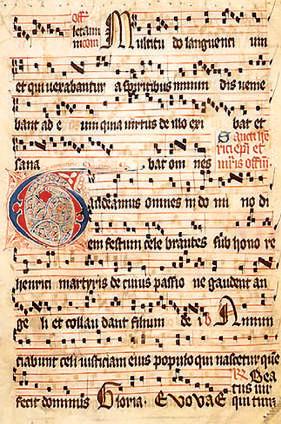 offm
letam Multitu do languenti um
et qui verabantur a spiritibus inmun dis venie
bant ad e um quia virtus de illo exi bat et
Sancti he
rici epi et
sana bat om nes mris offm
Gaudeamus omnes in do mi no di
em festum cele brantes sub hono re
henrici martyris de cuius passio ne gaudent an
ge li et collau dant filium de i Annun
ciabunt celi iusticiam eius populo qui nascetur que
fecit dominus Gloria Evovae Bea
tus vir
qui tim